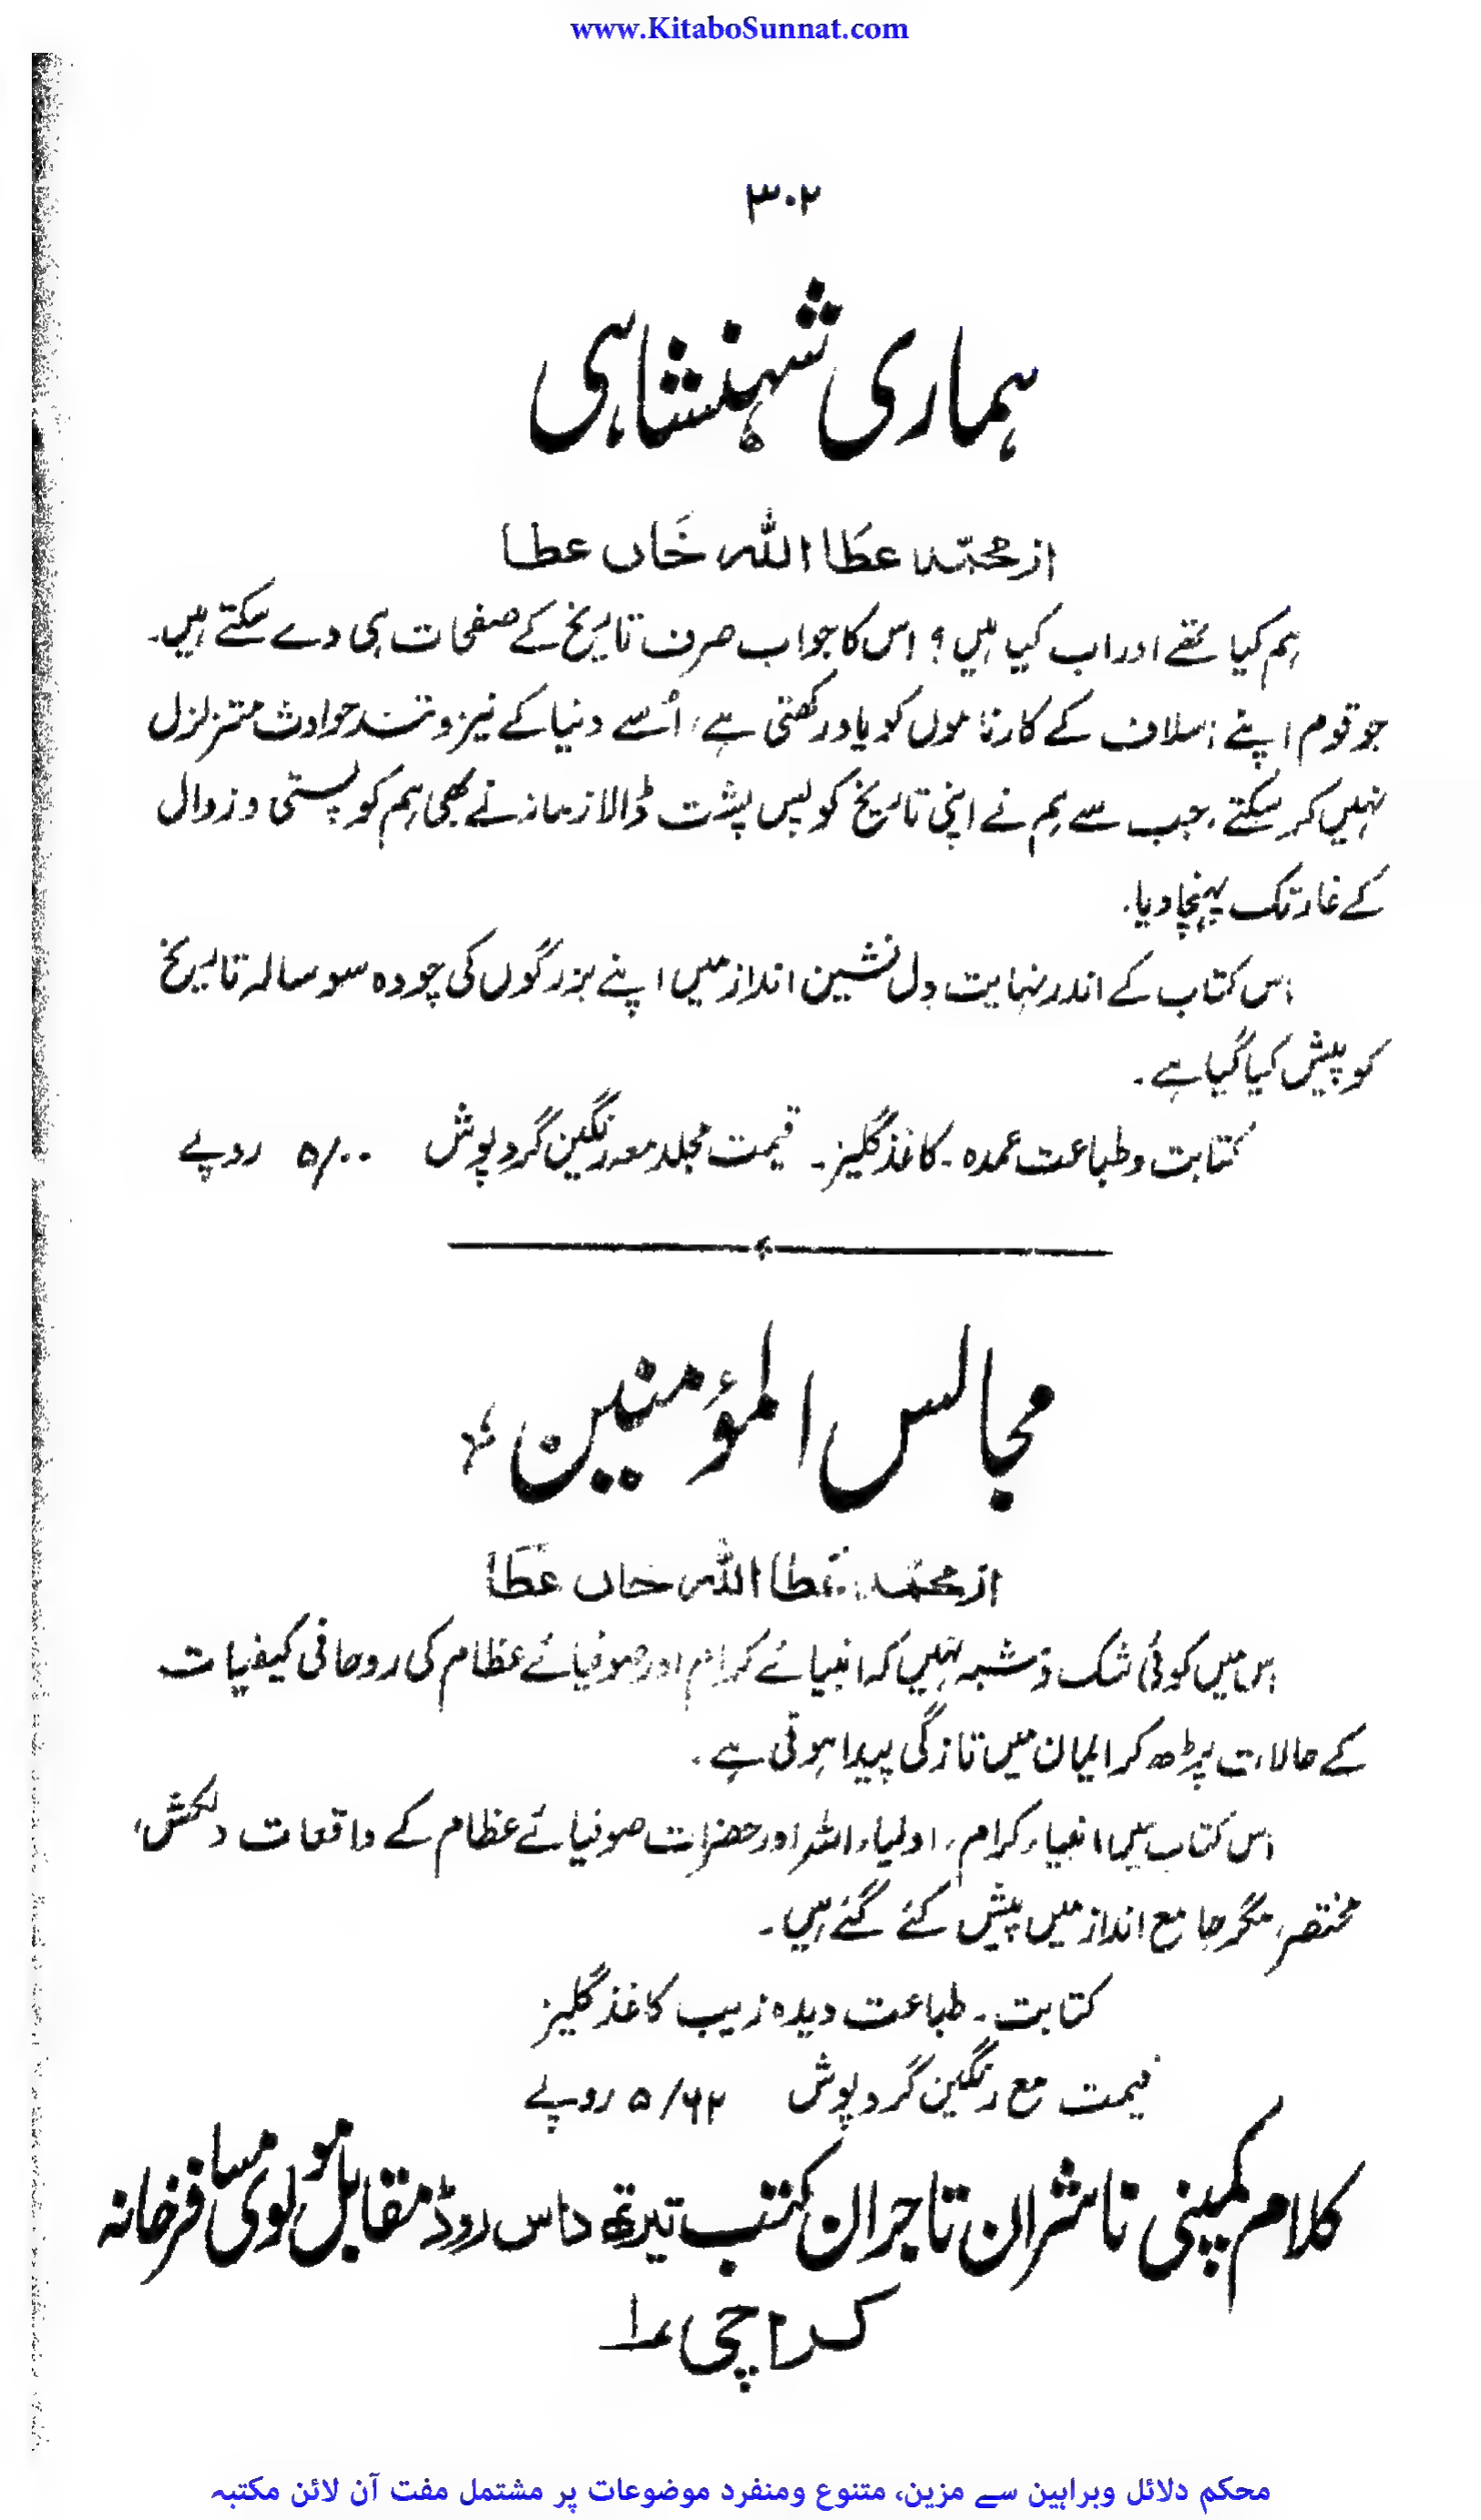 www.KitaboSunnat.com
۳۰۲
ہماری شہنشاہی
از محمد عطا اللہ خاں عطا
ہم کیا تھے اور اب کیا ہیں؟ اس کا جواب صرف تاریخ کے صفحات ہی دے سکتے ہیں۔
جو قوم اپنے اسلاف کے کارناموں کو یاد رکھتی ہے، اُسے دنیا کے تیز و تند حوادث متزلزل
نہیں کر سکتے۔ جب سے ہم نے اپنی تاریخ کو پس پشت ڈالا زمانہ نے بھی ہم کو پستی و زوال
کے غار تک پہنچا دیا۔
اس کتاب کے اندر نہایت دل نشین انداز میں اپنے بزرگوں کی چودہ سو سالہ تاریخ
کو پیش کیا گیا ہے۔
کتابت و طباعت عمدہ۔ کاغذ گلیز۔ قیمت مجلد معہ رنگین گرد پوش ۵/۰۰ روپے
مجالس المؤمنین
از محمد عطا اللہ خاں عطا
اس میں کوئی شک و شبہ نہیں کہ انبیائے کرام اور صوفیائے عظام کی روحانی کیفیات
کے حالات پڑھ کر ایمان میں تازگی پیدا ہوتی ہے۔
اس کتاب میں انبیاء کرام، اولیاء اللہ اور حضرات صوفیائے عظام کے واقعات دلکش،
مختصر، مگر جامع انداز میں پیش کئے گئے ہیں۔
کتابت۔ طباعت دیدہ زیب کاغذ گلیز
قیمت مع رنگین گرد پوش ۵/۶۲ روپے
کلام کمپنی ناشران تاجران کتب تیرتھ داس روڈ مقابل مولوی مسافرخانہ
کراچی ۱
محکم دلائل وبراہین سے مزین، متنوع ومنفرد موضوعات پر مشتمل مفت آن لائن مکتبہ